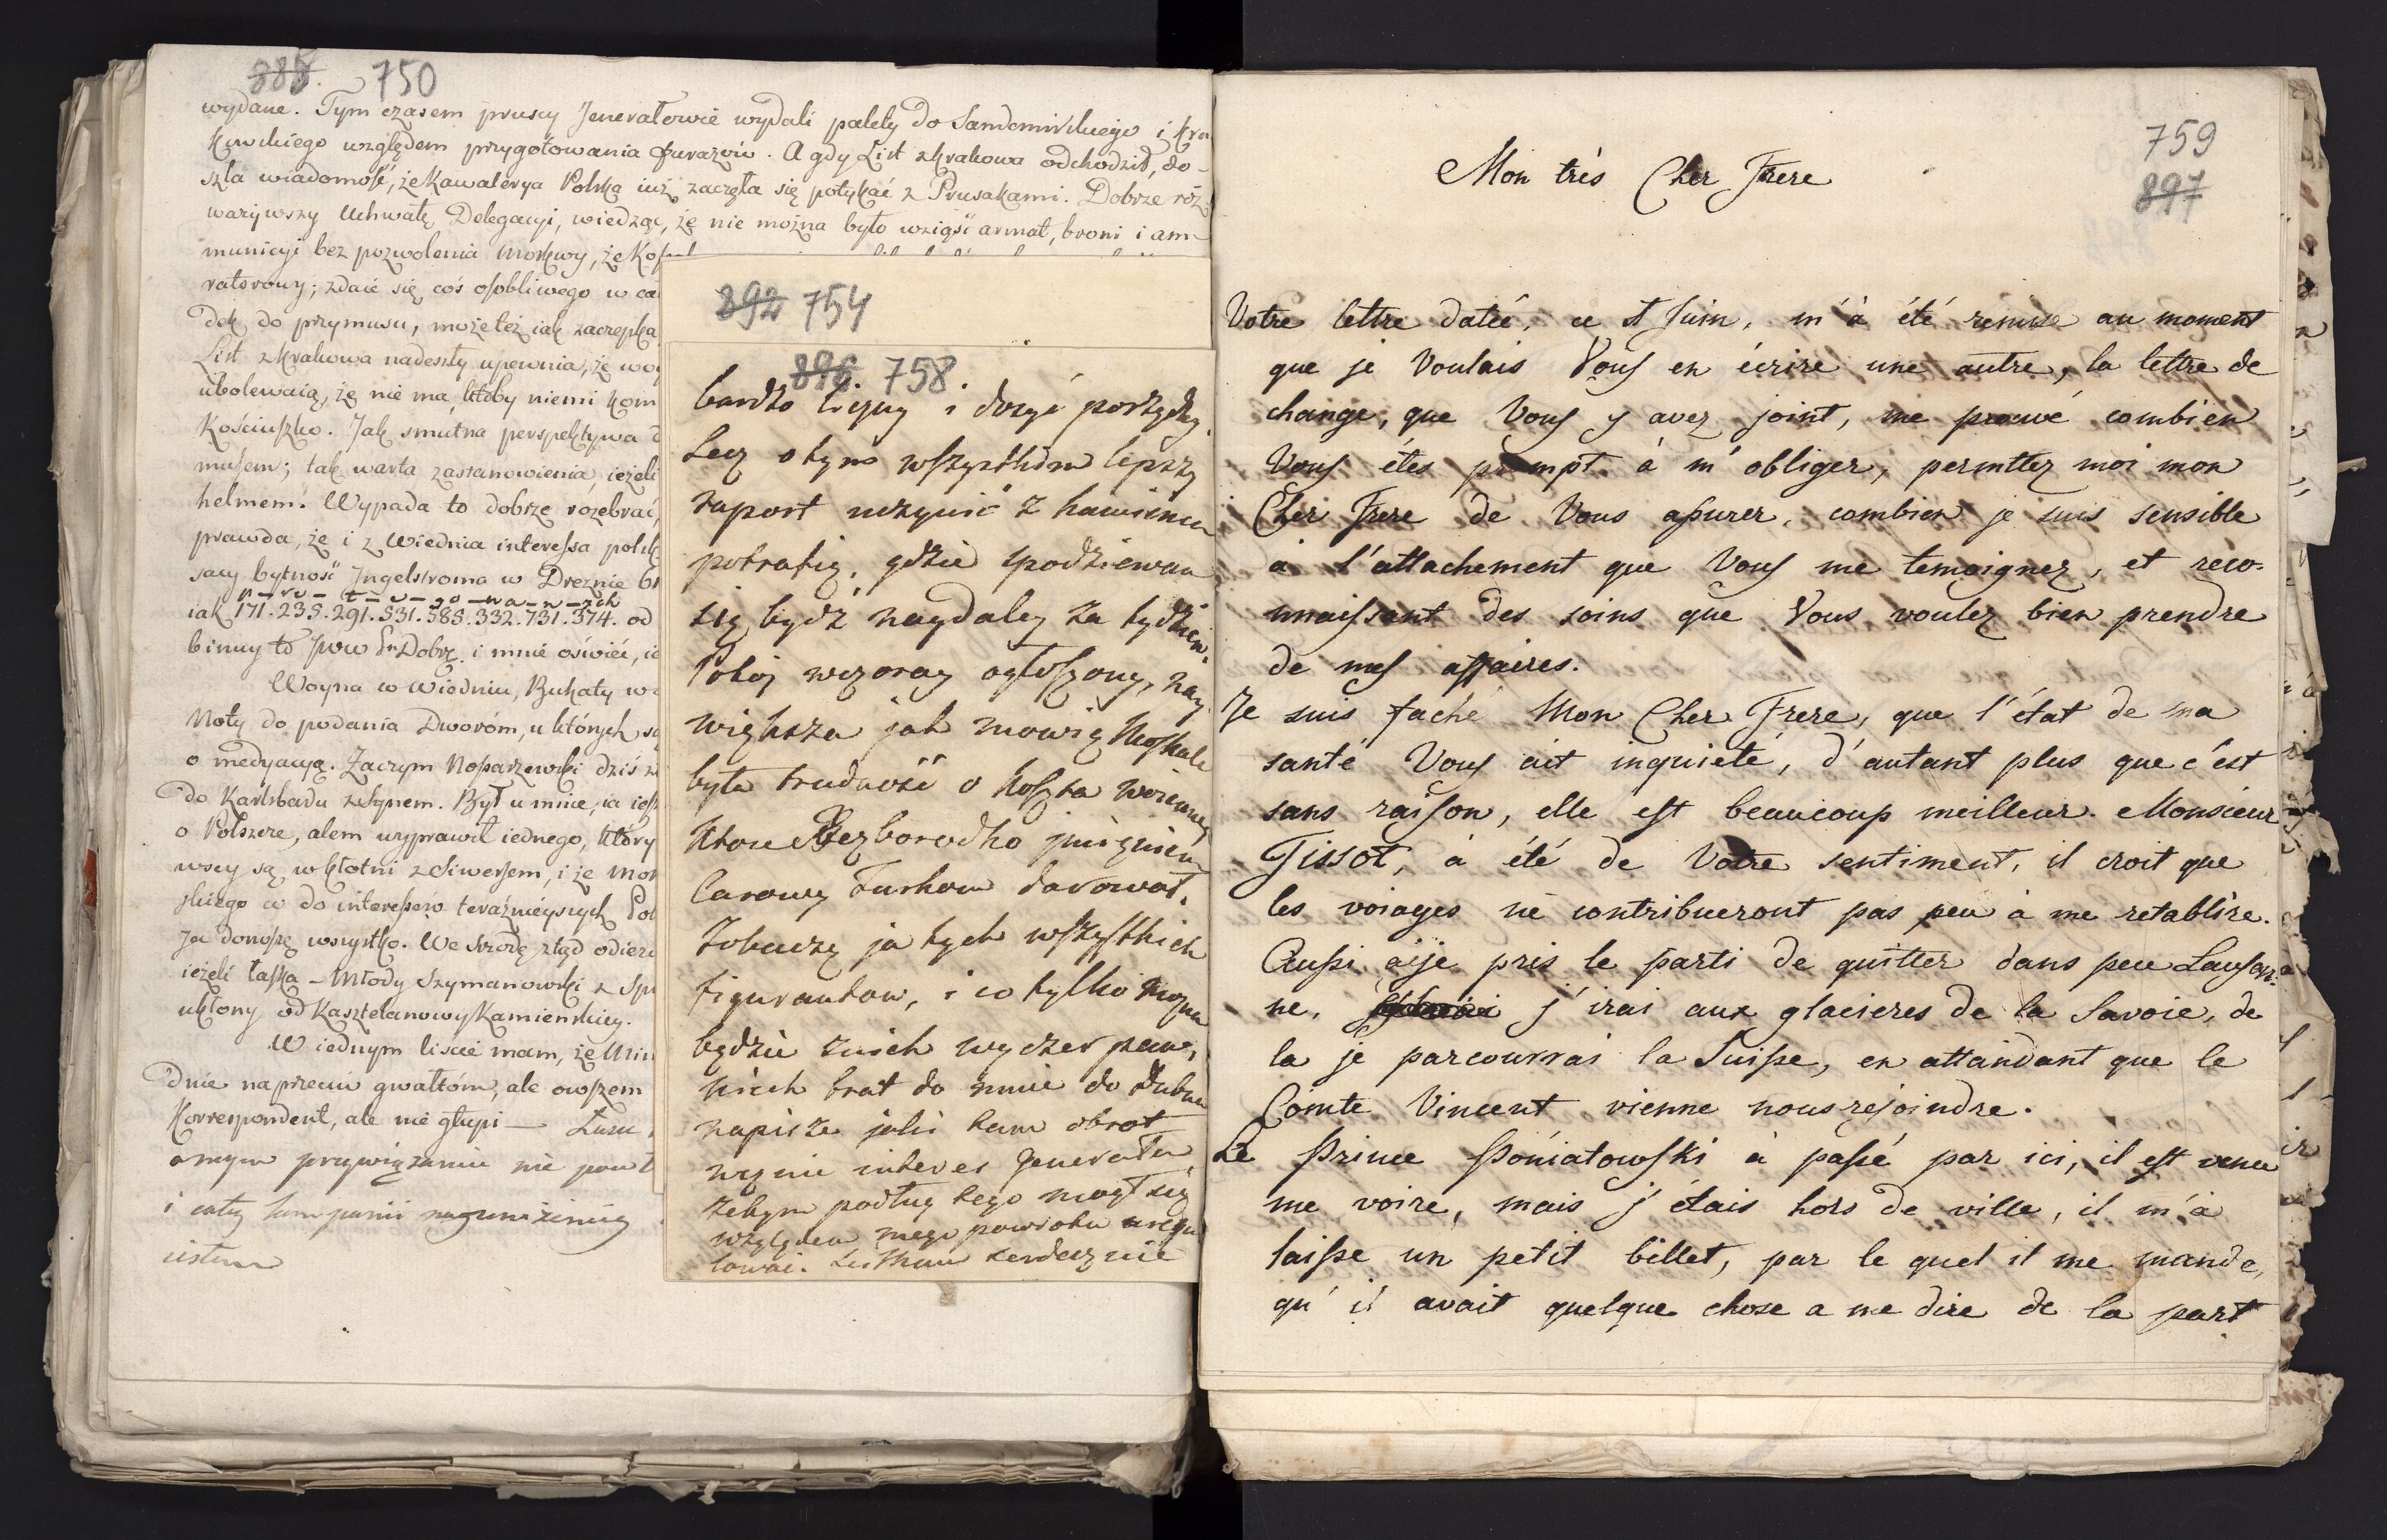 885. 750
wydane. Tym czasem pruscy Jenerałowie wydali palety do Sandomirskiego i Kra
kowskiego względem przygotowania furażów. A gdy List z Krakowa odchodził, do-
szła wiadomość, że Kawalerya Polska iuż zaczęła się potykać z Prusakami. Dobrze roz-
warzywszy Uchwałę Delegacyi, wiedząc, że nie można było wziąść armat, broni i am-
municyi bez pozwolenia Moskwy, że Ko
ratorowy; zdaie się coś osobliwego w ca
dek do przymusu, może też iak zaczepka
List z Krakowa nadeszły upewnia, że woy
ubolewaią, że nie ma, ktoby niemi kom
Kościuszko. Jak smutna perspektywa
musem; tak warta zastanowienia, ieżeli
helmem. Wypada to dobrze rozebrać,
prawda, że i z Wiednia interessa polsk
sacy bytność Ingelstroma w Dreznie
iak 171.235.291.531.585.332.731.374. od
binuy to Jww Dobr. i mnie oświeć,
Woyna w Wiedniu, Bukaty w
Noty do podania Dworóm, u których są
o medyacyą. Zaczym Moparzewski dziś
do Karlsbadu z Synem. Był u mnie, ia
o Polszcze, alem wyprawił iednego, który
wscy są w kłotni z Siwersem, i że Mo
skiego do interessów teraźnieyszych Pol
Ja donoszę wszystko. We Srzodę ztąd
ieżeli łaska - Młody Szymanowski z
ukłony od Kasztelanowy Kamieńskiey.
W iednym liscie mam, że Min
dnie naprzeciw gwałtóm, ale owszem
Korrespondent, ale nie głupi —
o mym przywiązaniu nie
i całey kompanii
892 754
896. 758
bardzo liczny i dosyć porządny.
Lecz o tym wszystkim lepszy
raport uczynić z Kamieńca
potrafię, gdzie spodziewam
się bydź naydaley za tydzien.
Pokoj wczoray ogłoszony, nay
większa jak mowią Moskale
była trudność o koszta woienne
ktore Bezborodko jmięniem
Carowy Turkom darował.
Zobaczę ja tych wszystkich
figurantow, i co tylko można
będzie z nich wyczerpam,
niech brat do mnie do Dubna
napisze jaki tam obrot
weźmie interes Generała,
żebym podług tego mogł się
względem mego powrotu uregu
lować. Sciskam serdecznie
759
897
Mon très Cher Frere
Votre lettre datée, ce 1 Juin, m'à été remise au moment
que je Voulais Vous en écrire une autre, la lettre de
change, que Vous y avez joint, me prouvé combien
Vous étes prompt à m'obliger, permttez moi mon
Cher Frere de Vous assurer, combien je suis sensible
à l'attachement que Vous me temoignez, et reco-
nnaissant des soins que Vous voulez bien prendre
de mes affaires.
Je suis faché Mon Cher Frere, que l'état de ma
santé Vous ait inquieté, d'autant plus que c'ést
sans raison, elle est beaucoup meilleur. Monsieur
Tissot, à été de Votre sentiment, il croit que
les voiages ne contribueront pas peu à me retablire.
Aussi aije pris le parti de quitter dans peu Lausan-
ne, j'irai aux glacieres de la Savoie, de
la je parcourrai la Suisse, en attandant que le
Comte Vincent vienne nous rejoindre.
Le Prince Poniatowski à passé par ici, il est venu
me voire, mais j'étais hors de ville, il m'à
laisse un petit billet, par le quel il me mande,
qu'il avait quelque chose a me dire de la part